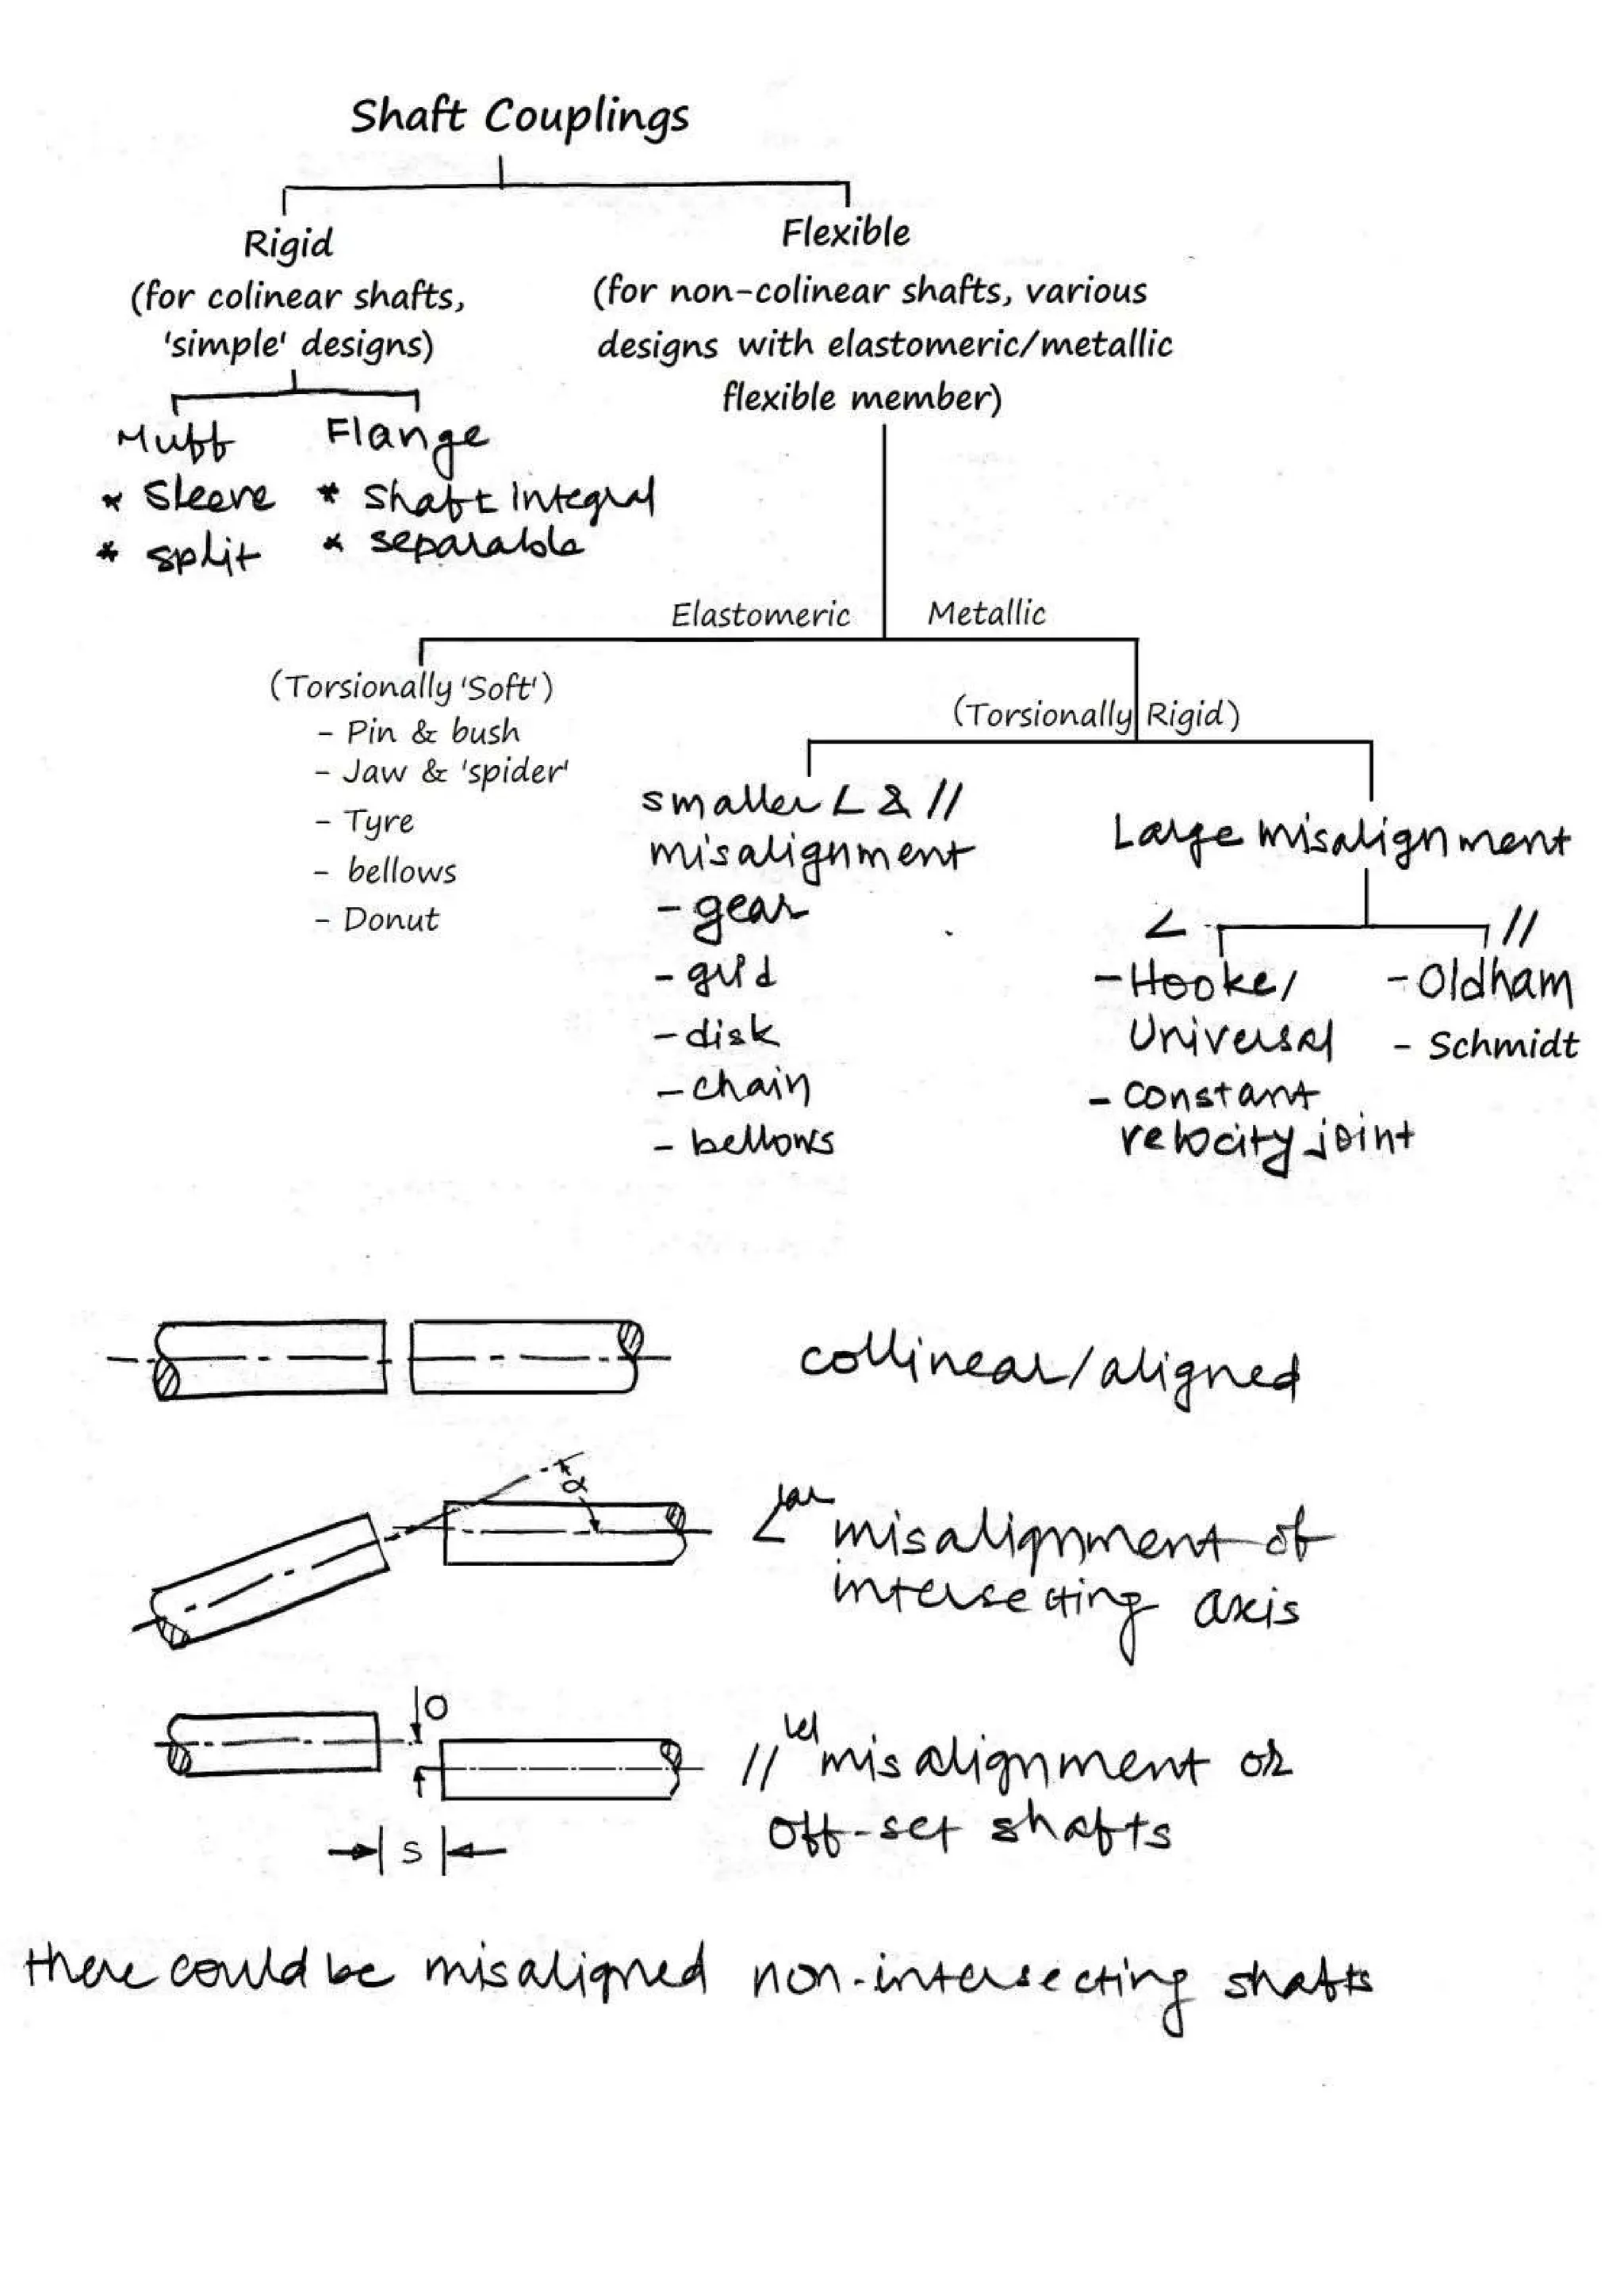 Shaft Couplings
Rigid
(for colinear shafts,
'simple' designs)
Flexible
(for non-colinear shafts, various
designs with elastomeric/metallic
flexible member)
Muff
* Sleeve
* split
Flange
* Shaft Integral
* separable
Elastomeric
Metallic
(Torsionally 'Soft')
- Pin & bush
- Jaw & 'spider'
- Tyre
- bellows
- Donut
(Torsionally Rigid)
smaller ∠ & //
misalignment
- gear
- grid
- disk
- chain
- bellows
Large misalignment
∠
- Hooke/
Universal
- constant
velocity joint
//
- Oldham
- Schmidt
collinear/aligned
α
∠lar misalignment of
intersecting axis
O
S
//lel misalignment or
off-set shafts
there could be misaligned non-intersecting shafts